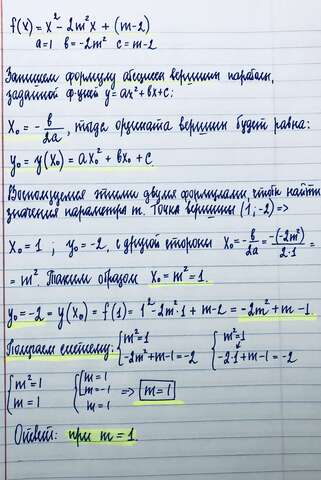 f(x) = x² - 2m²x + (m-2)
a=1 b=-2m² c=m-2
Запишем формулу абсциссы вершины параболы,
заданной ф-цией y=ax²+bx+c:
x₀ = -b/2a, тогда ордината вершины будет равна:
y₀ = y(x₀) = ax₀² + bx₀ + c.
Воспользуемся этими двумя формулами, чтобы найти
значения параметра m. Точка вершины (1;-2) =>
x₀ = 1 ; y₀ = -2, с другой стороны x₀ = -b/2a = -(-2m²)/2·1 =
= m². Таким образом x₀ = m² = 1.
y₀ = -2 = y(x₀) = f(1) = 1² - 2m²·1 + m-2 = -2m² + m - 1.
Получаем систему: { m²=1 { m²=1
-2m²+m-1=-2 -2·1+m-1=-2
{ m²=1 { [ m=1
m=1 m=-1 => m=1
m=1
Ответ: при m=1.